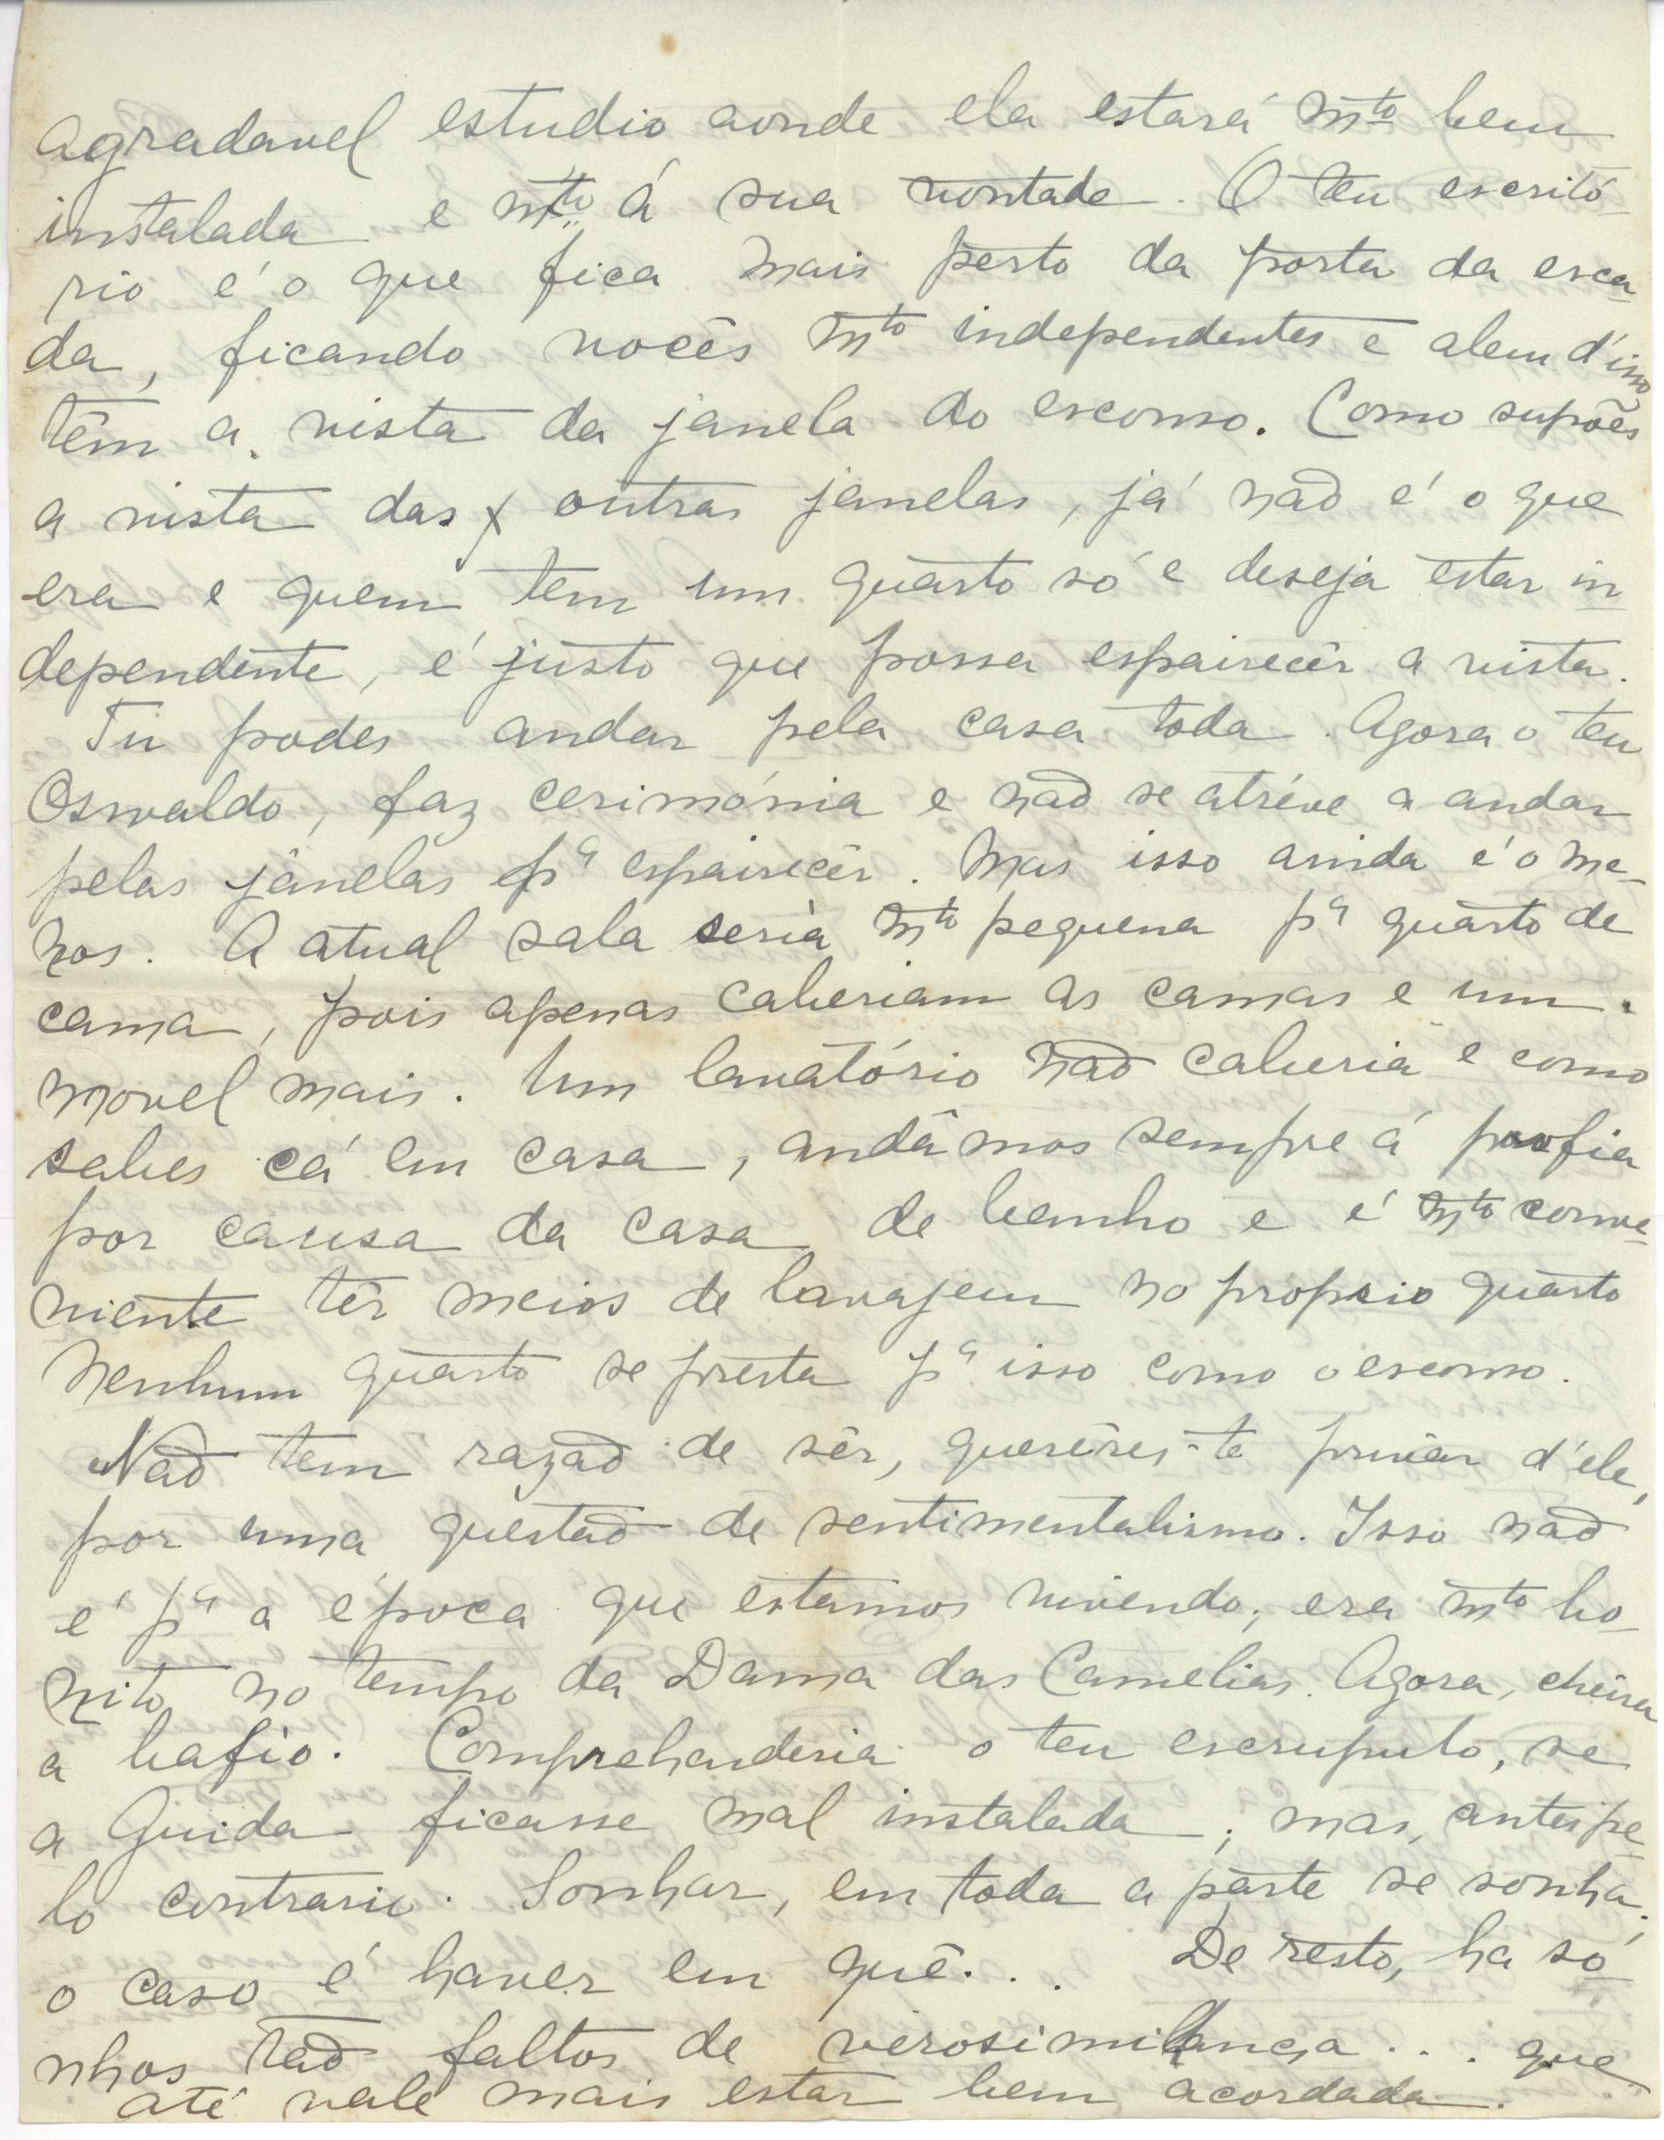 agradavel estudio aonde ela estará mto bem
instalada e mto á sua vontade. O teu escritó-
rio é o que fica mais perto da porta da esca-
da, ficando vocês mto independentes e alem d'isso
têm a vista da janela do escono. Como supões
a vista das outras janelas, já não é o que
era e quem tem um quarto só e deseja estar in-
dependente, é justo que possa espairecêr a vista.
Tu podes andar pela casa toda. Agora o teu
Oswaldo, faz cerimónia e não se atréve a andar
pelas janelas pa espairecêr. Mas isso ainda é o me-
nos. A atual sala seria mto pequena pa quarto de
cama, pois apenas caberiam as camas e um
movel mais. Um lavatório não caberia e como
sabes cá em casa, andâmos sempre á porfia
por causa da casa de banho e é mto conve-
niente têr meios de lavajem no proprio quarto
Nenhum quarto se presta pa isso como o escono.
Não tem razão de sêr, querêres-te privar d'ele,
por uma questão de sentimentalismo. Isso não
é pa a época que estamos vivendo; era mto bo-
nito no tempo da Dama das Camelias. Agora, cheira
a bafio. Comprehenderia o teu escrupulo, se
a Guida ficasse mal instalada; mas, antes pe-
lo contrario. Sonhar, em toda a parte se sonha,
o caso é haver em quê... De resto, ha so-
nhos tão faltos de verosimilança... que
até vale mais estar bem acordada.